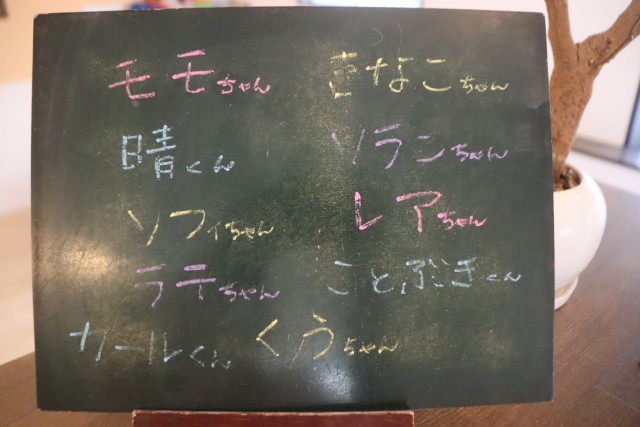 モモちゃん きなこちゃん
晴くん ソランちゃん
ソフィちゃん レアちゃん
ラテちゃん ことぶきくん
カールくん くうちゃん